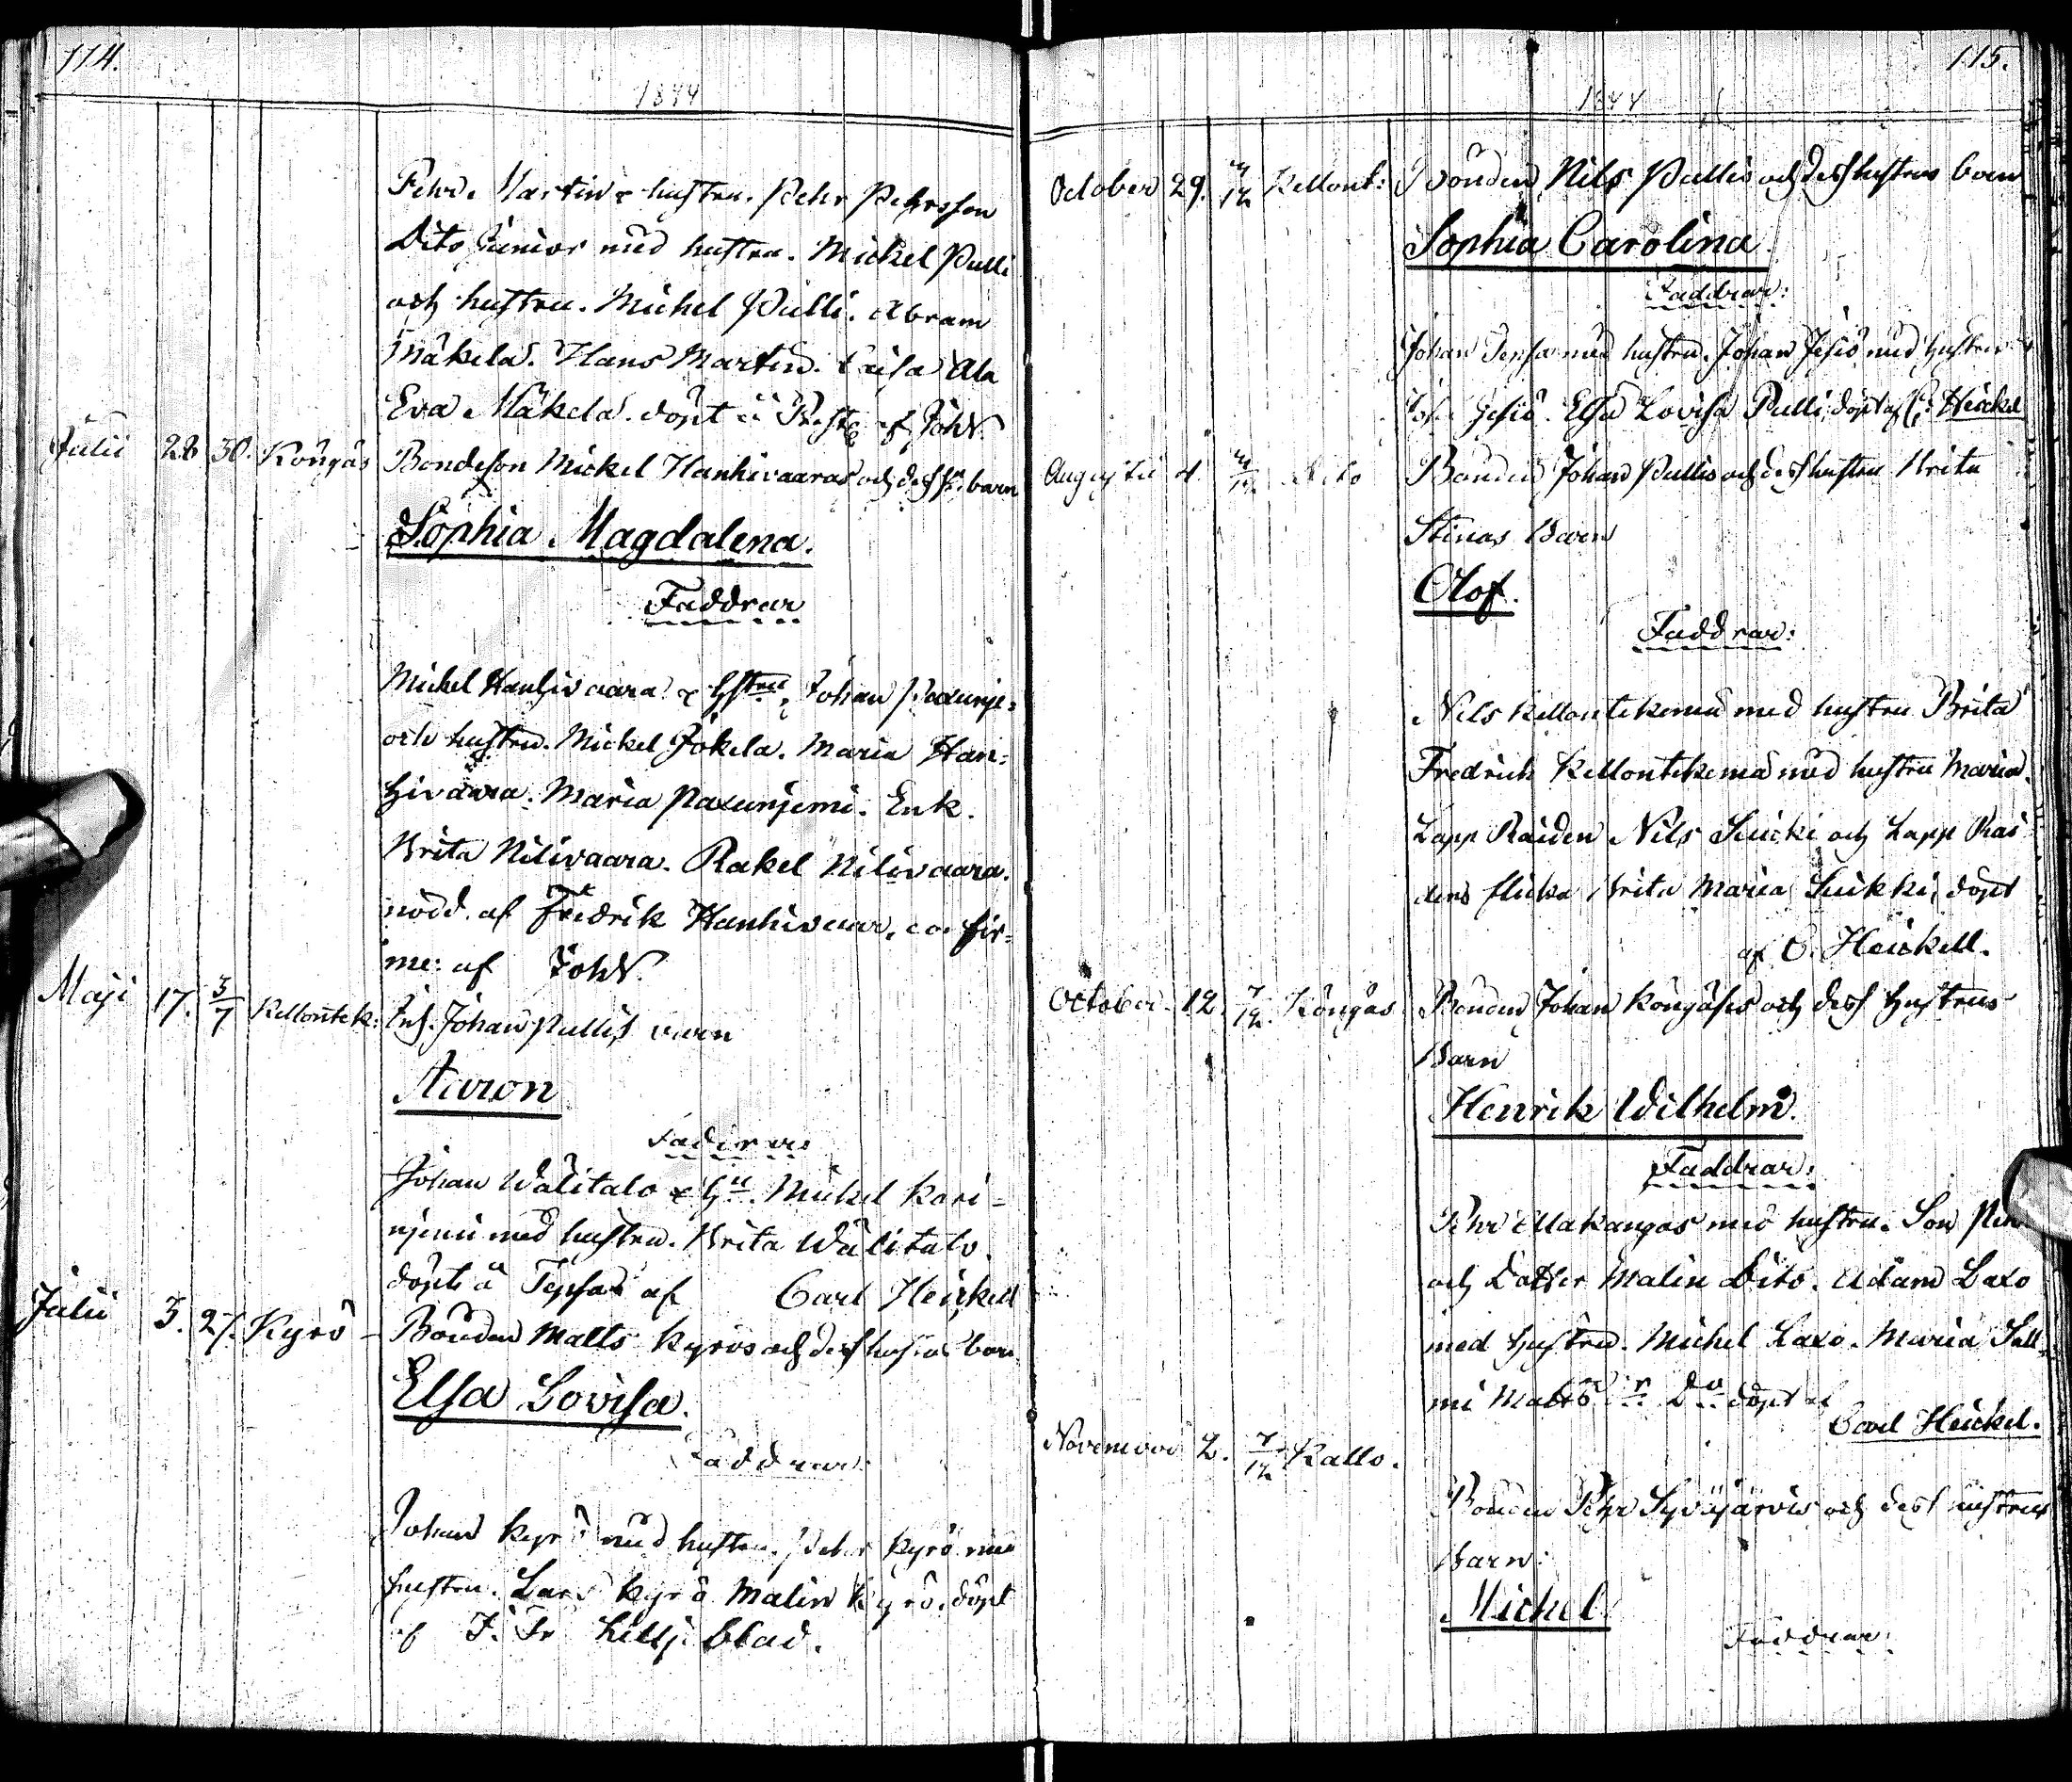 114.
1844
Pehr Martin & hustru. Pehr Pehrsson
Dito Junior med hustru. Mickel Pulli
och hustru. Michel Pulli. Abram
Mäkelä. Hans Martin. Caisa Ala
Eva Mäkelä. döpt å af JohW.
Julii 28 30. Köngäs Bondeson Mickel Hanhivaaras och dess h. barn
Sophia Magdalena.
Faddrar
Michel Hanhivaara & hstru, Johan Paxunje-
och hustru. Mickel Jokela. Maria Han-
hivaara. Maria Paxunjemi. Enk.
Brita Nilivaara. Rakel Nilivaara.
nödd. af Fredrik Hanhivaar, confir-
me: af JohW.
Maji 17. 3/7 Kellontek: Inh. Johan Pullis barn
Aaron
Faddrar
Johan Wälitalo & hu. Mickel Kari-
njemi med hustru. Brita Wälitalo.
döpt å Tepsa af Carl Heickell
Julii 3. 27. Kyrö Bonden Matts Kyrös och dess hustrus barn
Elsa Lovisa.
Faddrar
Johan Kyrö med hustru. Pehr Kyrö med
hustru. Lars Kyrö Malin Kyrö. döpt
af J. Fr Lilljeblad.
115.
1844
October 29. 4/12 Kellont: Bonden Nils Pullis och dess hustrus barn
Sophia Carolina
Faddrar:
Johan Tepsa med hustru. Johan Jesiö med hustru
Jesiö. Elsa Lovisa Pulli, döpt af C: Heickel
Augusti 4. 4/12 Dito Bonden Johan Pullis och dess hustru Brita
Stinas Barn
Olof.
Faddrar:
Nils Kellontekemä med hustru Brita
Fredrich Kellontekemä med hustru Maria.
Lapp Raiden Nils Suicki och Lapp Rai
dens flicka Brita Maria Suikki, döpt
af C. Heickell.
October 12. 7/12. Köngäs Bonden Johan Köngäses och dess hustrus
Barn
Henrik Wilhelm.
Faddrar:
Pehr Alakangas med hustru. Son Pehr
och Dotter Malin Dito. Adam Laxo
med hustru. Michel Laxo. Maria Sall-
mi Matts dr Do döpt af
Carl Heickel.
November 2. 7/12 Kallo. Bonden Pehr Syväjärvis och dess hustrus
Barn:
Michel
Faddrar: